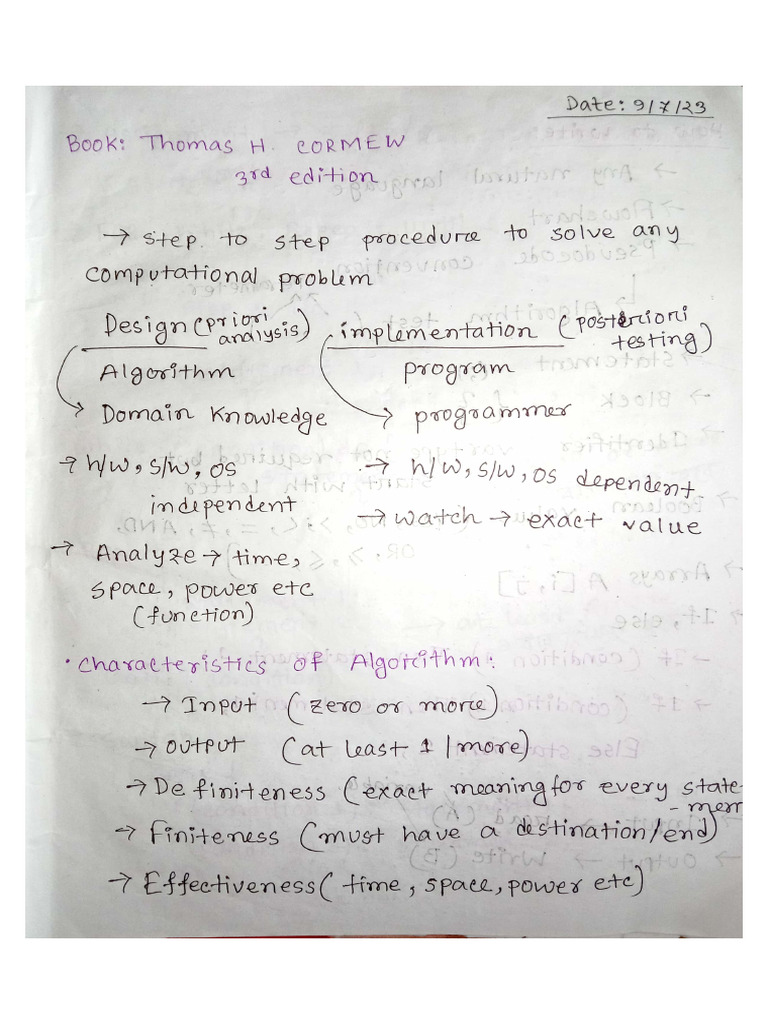 Date: 9/7/23
Book: Thomas H. CORMEW
3rd edition
→ step to step procedure to solve any
computational problem
Design (priori analysis) implementation (posteriori testing)
Algorithm program
→ Domain Knowledge → programmer
→ h/w, s/w, OS → h/w, s/w, OS dependent
independent → watch → exact value
→ Analyze → time,
space, power etc
(function)
• Characteristics of Algorithm:
→ Input (zero or more)
→ output (at least 1 / more)
→ Definiteness (exact meaning for every state-
-men
→ Finiteness (must have a destination/end)
→ Effectiveness (time, space, power etc)